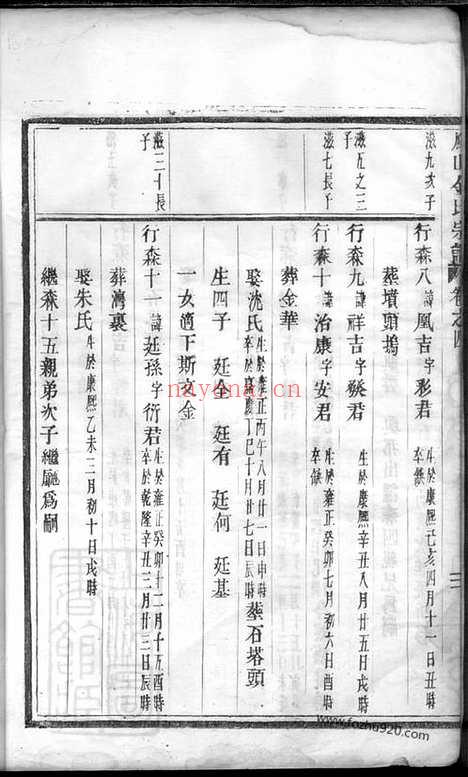 山金氏宗譜 卷之四
三
滋九次子
行森八諱凰吉字彩君 生於康熙己亥四月十一日丑時
卒缺
葬墳頭塢
滋五之三
子
行森九諱祥吉字燦君 生於康熙辛丑八月廿五日戌時
滋七長子
行森十諱治康字安君 生於雍正癸卯七月初六日酉時
卒缺
葬金華
娶沈氏 生於雍正丙午八月廿一日申時
卒於嘉慶丁巳十月廿七日辰時 葬石塔頭
生四子 廷全 廷有 廷何 廷基
一女適下斯文金
滋三十長
子
行森十一諱廷孫字衍君 生於雍正癸卯十二月十五酉時
卒於乾隆辛丑三月廿三日辰時
葬灣裏
娶朱氏 生於康熙乙未三月初十日戌時
繼森十五親弟次子繼廳爲嗣
nayona.cn
www.fozhu920.com